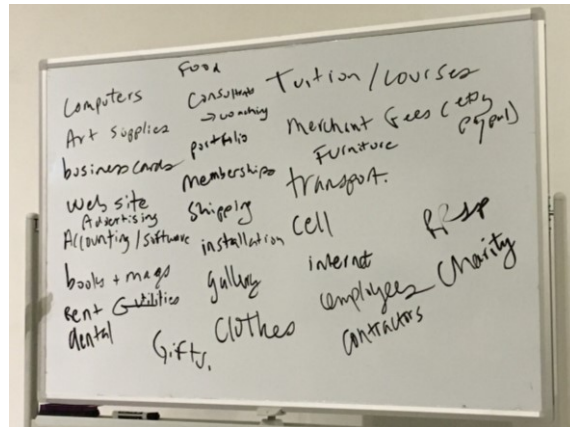 Computers
Art Supplies
business cards
Web site
Advertising
Accounting/software
books + mags
Rent Utilities
dental
Food
Consultants
→ coaching
portfolio
Memberships
Shipping
installation
gallery
Clothes
Gifts.
Tuition/courses
Merchant Fees (etsy
paypal)
Furniture
transport.
cell
internet
employees
contractors
RRSP
Charity